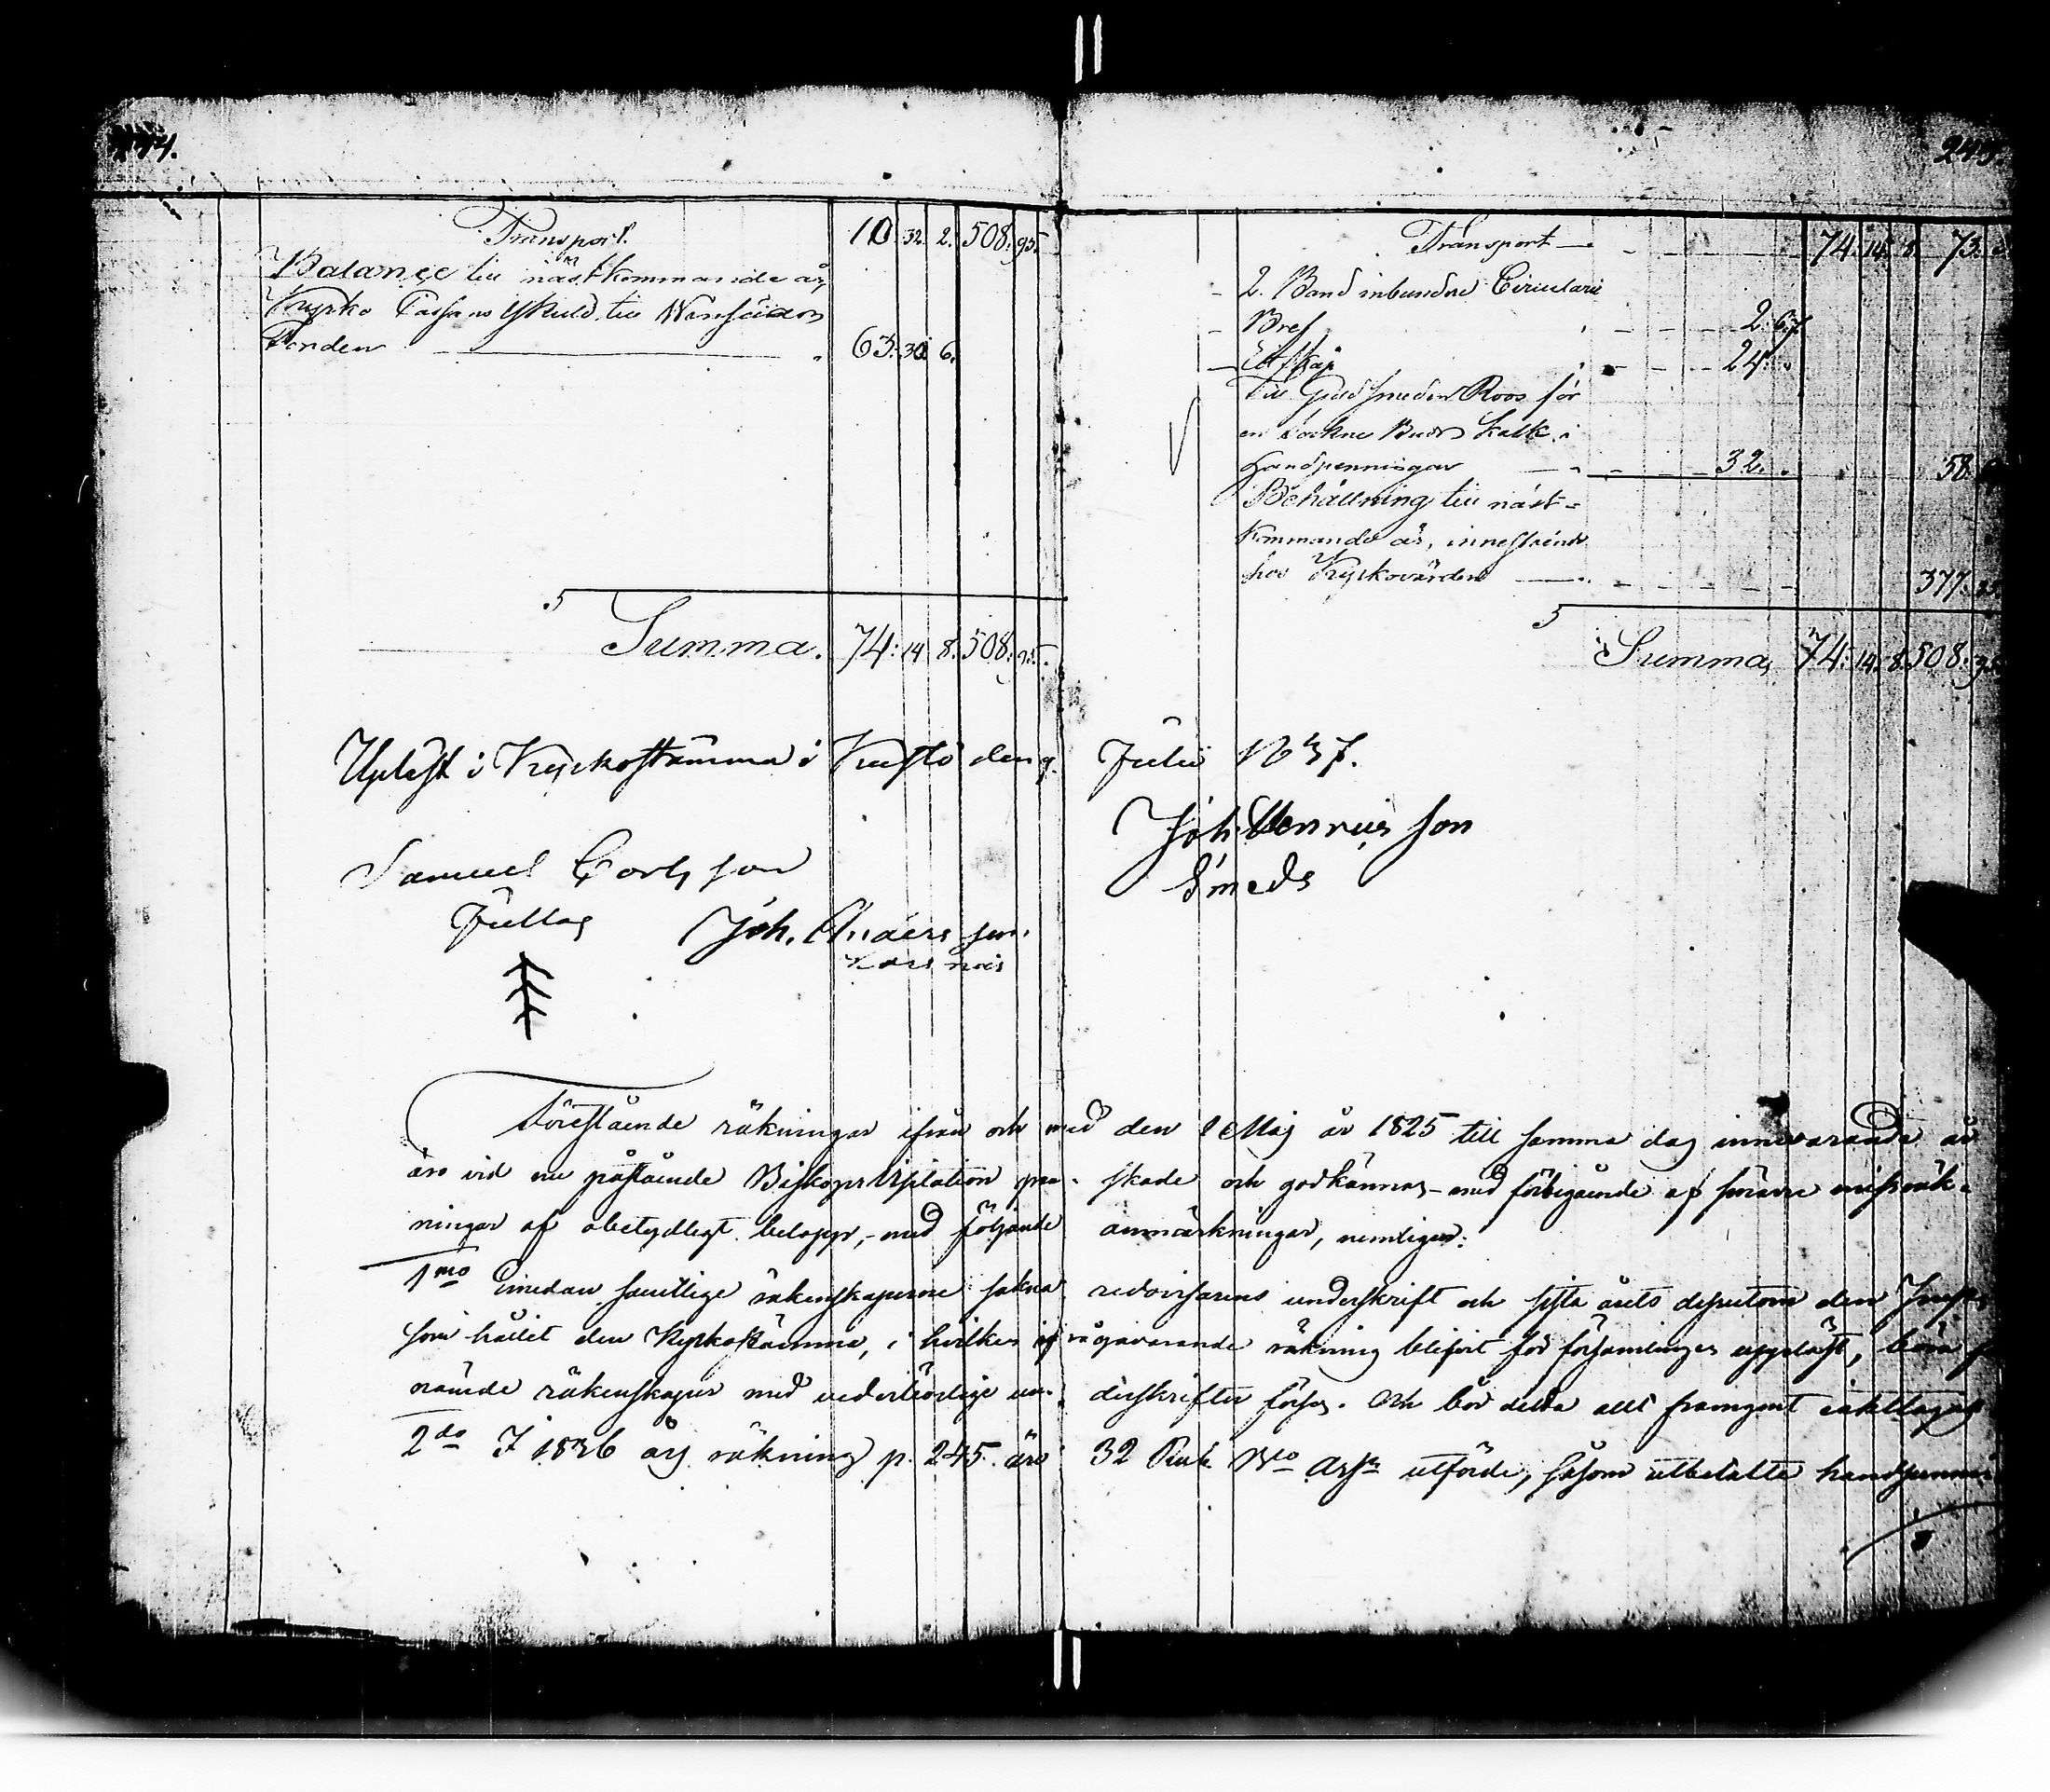 244.
Transport. 10. 32. 2. 508. 95.
Balance till nästkommande år,
Kyrko Cassans Skuld till
Fonden 63. 30. 6.
Summa. 74: 14 8. 508. 95.
245.
Transport 74. 14. 8. 73.
2. Band inbundne Circulair
Bref 2: 67
Ett Skåp 24:
Till Guldsmeden Roos för
en Sockne Buds kalk i
handpenningar 32. 58.
Behållning till näst-
kommande år, innestående
hos Kyrkovärden 377:
Summa 74: 14. 8. 508. 95
Upläst i Kyrkostämma i Kustö den 9. Julii 1837.
Joh. Henricsson
Smeds
Samuel Carlsson
Jullas
Joh. Andersson
Förestående räkningar ifrån och med den 1 Maj år 1825 till samma dag innevarande år
äro vid nu påstående Biskops Visitation gran- skade och godkännas - med förbigående af smärre missräk-
ningar af obetydligt belopp, - med följande anmärkningar, nemligen:
1mo Emedan samtlige räkenskaperne sakna redovisarens underskrift och sista årets dessutom den
som hållit den Kyrkostämma, i hvilken ifrågavarande räkning blifvit för församlingen uppläst, böra
nämde räkenskaper med vederbörlige un- derskrifter förses. Och bör detta allt framgent iakttagas
2do I 1836 års räkning p. 245 äro 32 Rub. Bco Assr utförde, såsom utbetalte